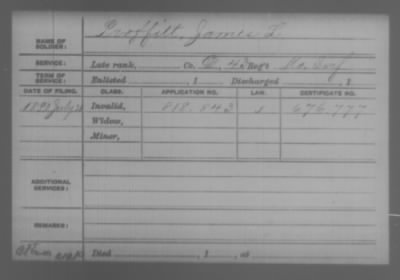 NAME OF SOLDIER: Proffitt, James L
SERVICE: Late rank, Co. D. 4 Reg't Mo. Inf
TERM OF SERVICE: Enlisted , 1 Discharged , 1
DATE OF FILING. CLASS. APPLICATION NO. LAW. CERTIFICATE NO.
1890 July Invalid, 818.843 676.777
Widow,
Minor,
ADDITIONAL SERVICES:
REMARKS:
Died , 1 , at